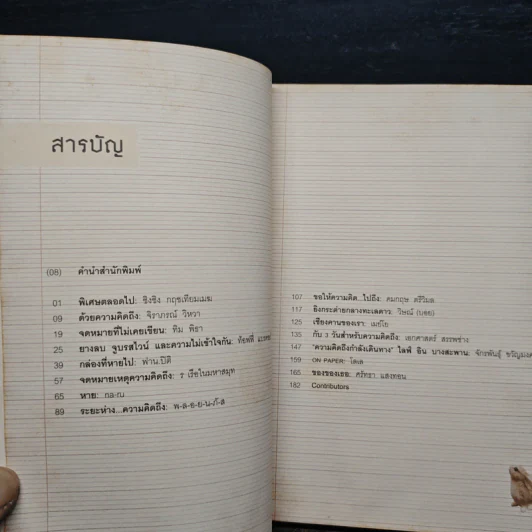 สารบัญ
(08) คำนำสำนักพิมพ์
01 พิเศษตลอดไป: ชิงชิง กฤชเทียมเมฆ
09 ด้วยความคิดถึง: จิราภรณ์ วิหวา
19 จดหมายที่ไม่เคยเขียน: ทิม พิธา
25 ยางลบ จูบรสไวน์ และความไม่เข้าใจกัน:
39 กล่องที่หายไป: ฟาน.ปีติ
57 จดหมายเหตุความคิดถึง: ร เรือในมหาสมุท
65 หาย: ณ
89 ระยะห่าง...ความคิดถึง: พ-ล-อ-ย-น-ภั-ส
107 ขอให้ความคิด...ไปถึง: คมกฤษ ตรีวิมล
117 อิงกระต่ายกลางทะเลดาว: วิษณ์ (บอย)
125 เชียงคานของเรา: เมย์โย
135 กับ 3 วันสำหรับความคิดถึง: เอกศาสตร์ สรรพช่าง
147 "ความคิดถึงกำลังเดินทาง" ไลฟ์ อิน บางสะพาน: จักรพันธุ์ ขวัญมงคล
159 ON PAPER: โตเล
165 ของของเธอ: ศรัทธา แสงทอน
182 Contributors